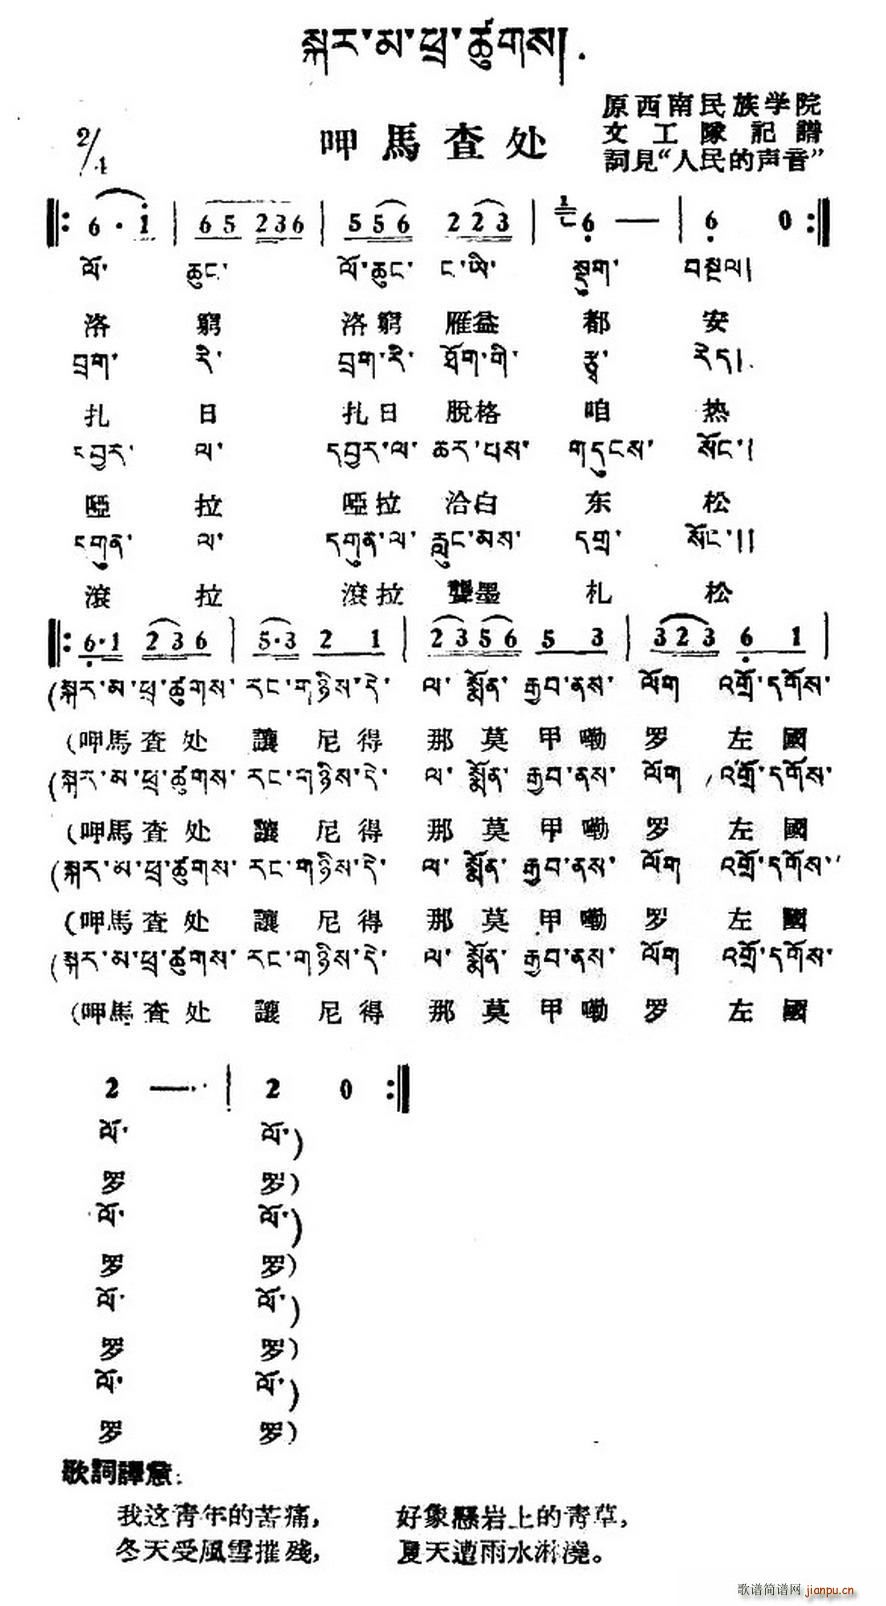 སྐར་མ་ཕྲ་ཚུགས།
呷馬査处
原西南民族学院
文工隊記譜
詞見“人民的声音”
2/4
6 · i | 65 236 | 5 56 2 23 | 6 — | 6 0
ལོ་ ཆུང་ ལོ་ཆུང་ ང་ཡི་ སྡུག་ བསྔལ།
洛 窮 洛窮 雁益 都 安
བྲག་ རི་ བྲག་རི་ ཐོག་གི་ རྩྭ་ རེད།
扎 日 扎日 脫格 咱 热
དབྱར་ ལ་ དབྱར་ལ་ ཆར་པས་ གདུངས་ སོང་།
啞 拉 啞拉 洽白 东 松
དགུན་ ལ་ དགུན་ལ་ རླུང་མས་ དགྲ་ སོང་།།
滾 拉 滾拉 龔墨 札 松
6·1 2 3 6 | 5·3 2 1 | 2 3 5 6 5 3 | 3 2 3 6 1
(སྐར་མ་ཕྲ་ཚུགས་ རང་གཉིས་དེ་ ལ་ སྨོན་ རྒྱབ་ནས་ ལོག འགྲོ་དགོས་
(呷馬査处 讓 尼得 那 莫 甲嘞 罗 左 國
(སྐར་མ་ཕྲ་ཚུགས་ རང་གཉིས་དེ་ ལ་ སྨོན་ རྒྱབ་ནས་ ལོག འགྲོ་དགོས་
(呷馬査处 讓 尼得 那 莫 甲嘞 罗 左 國
(སྐར་མ་ཕྲ་ཚུགས་ རང་གཉིས་དེ་ ལ་ སྨོན་ རྒྱབ་ནས་ ལོག འགྲོ་དགོས་
(呷馬査处 讓 尼得 那 莫 甲嘞 罗 左 國
(སྐར་མ་ཕྲ་ཚུགས་ རང་གཉིས་དེ་ ལ་ སྨོན་ རྒྱབ་ནས་ ལོག འགྲོ་དགོས་
(呷馬査处 讓 尼得 那 莫 甲嘞 罗 左 國
2 — | 2 0
ལོ་ ལོ་)
罗 罗)
ལོ་ ལོ་)
罗 罗)
ལོ་ ལོ་)
罗 罗)
ལོ་ ལོ་)
罗 罗)
歌詞譯意:
我这青年的苦痛， 好象懸岩上的青草，
冬天受風雪摧殘， 夏天遭雨水淋澆。
歌谱简谱网 jianpu.cn